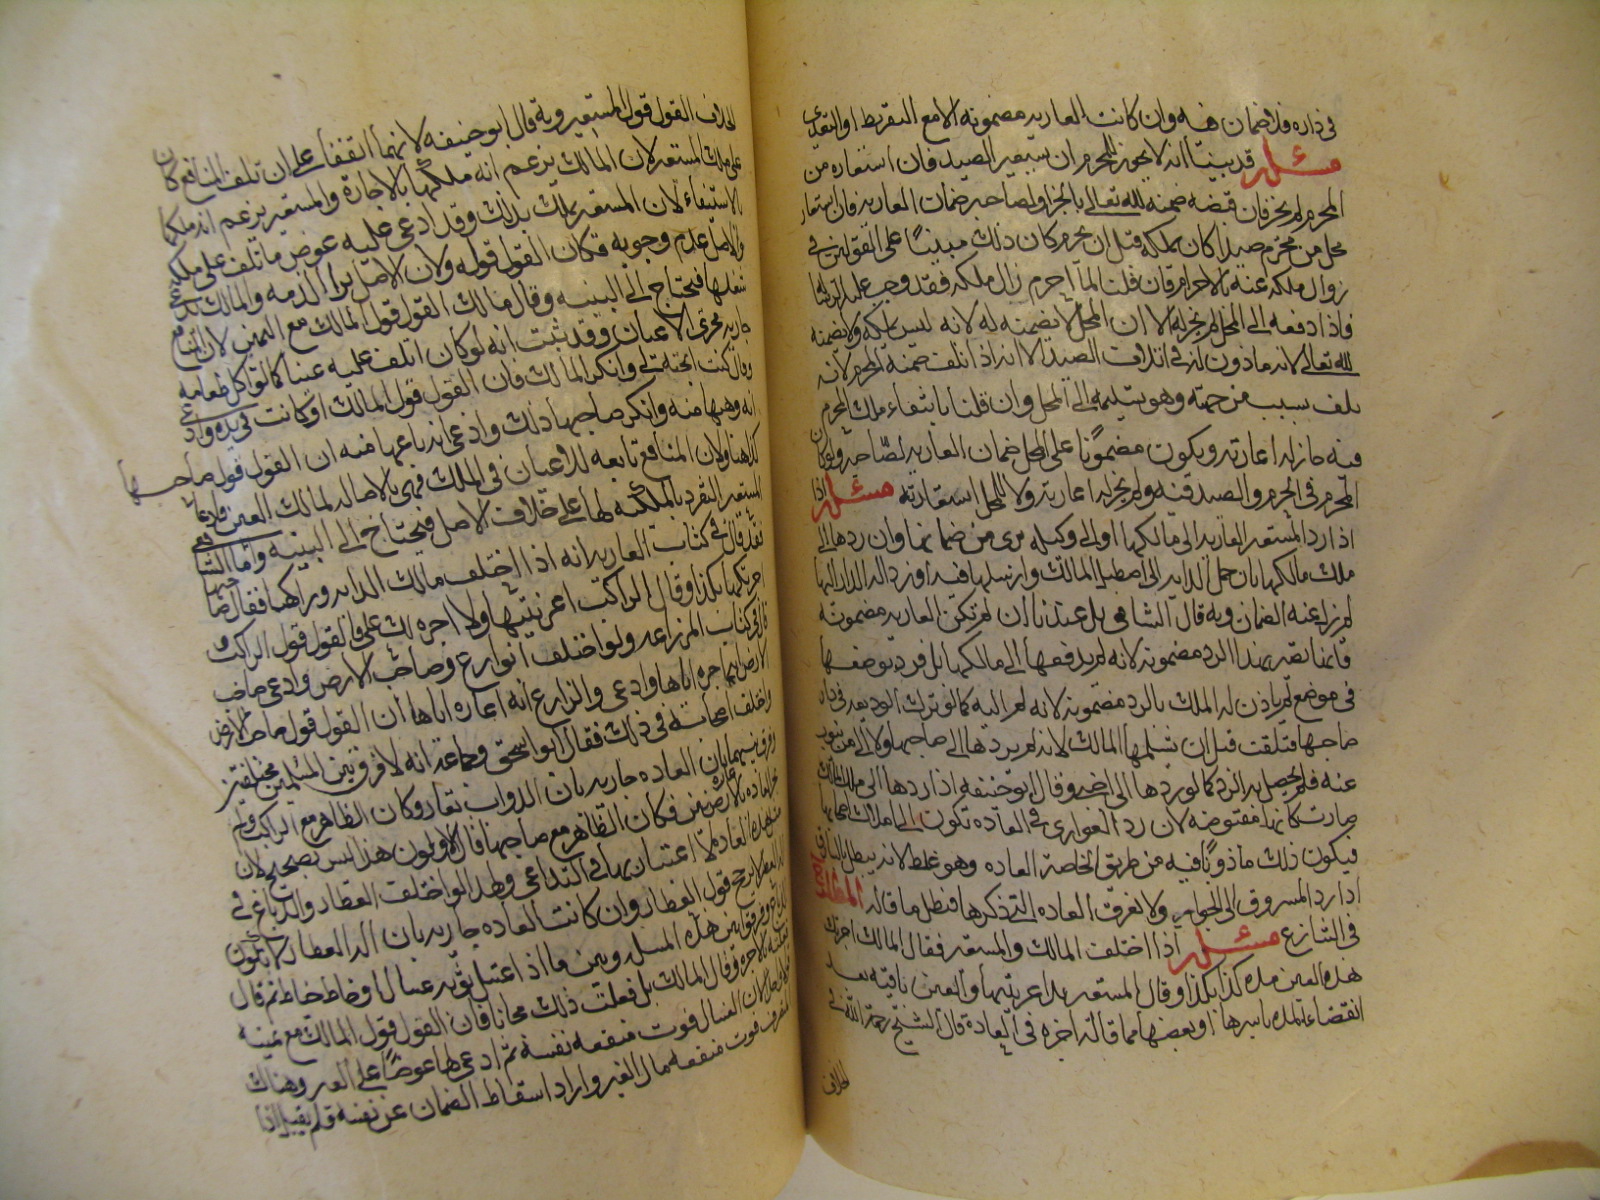 في داره فلا ضمان فيه وان كانت العارية مضمونة الا مع التفريط او التعدي
مسئلة قد بينا انه لا يجوز للمحرم ان يستعير الصيد فان استعاره من
المحرم لم يجز فان قبضه ضمنه لله تعالى بالجزا ولصاحبه ضمان العارية فان استعار
محل من محرم صيدا كان يملكه قبل ان يحرم كان ذلك مبنيا على القولين في
زوال ملكه عنه بالاحرام فان قلنا لما احرم زال ملكه فقد وجب عليه
فاذا دفعه الى المحل لم يجز له الا ان المحل لا يضمنه له لانه ليس بملكه ولا يضمنه
لله تعالى لانه ماذون له في اتلاف الصيد الا انه اذا اتلف ضمنه المحرم لانه
تلف بسبب من جهته وهو تسليمه الى المحل وان قلنا بابتقاء ملك المحرم
فيه جاز له اعارته ويكون مضمونا على المحل ضمان العارية لصاحبه ولو كان
المحرم في الحرم والصيد فيه ولم يجز له اعارته ولا للمحل استعارته مسئلة اذا
اذا رد المستعير العارية الى مالكها او الى وكيله برئ من ضمانها وان ردها الى
ملك مالكها بان حمل الدابة الى اصطبل المالك وارسلها فيه او رد الة الدار اليها
لم يزل عنه الضمان وبه قال الشافعي بل عندنا ان لم تكن العارية مضمونة
فانها تصير بهذا الرد مضمونة لانه لم يدفعها الى مالكها بل فرط بوضعها
في موضع لم ياذن له المالك بالرد مضمونة لانه لم اليه كما لو ترك الوديعة في دار
صاحبها فتلفت قبل ان يتسلمها المالك لانه لم يردها الى صاحبها ولا الى من ينوب
عنه فلم يحصل به الرد كما لو ردها الى اجنبي وقال ابو حنيفة اذا ردها الى ملك المالك
صارت كانها مقبوضة لان رد العواري في العادة تكون الى املاك اصحابها
فيكون ذلك ماذونا فيه من طريق الخاصة العادة وهو غلط لانه يبطل بالسارق
اذا رد المسروق الى الحرز ولا نعرف العادة التي ذكرها فبطل ما قاله المطلب
في التنازع مسئلة اذا اختلف المالك والمستعير فقال المالك اجرتك
هذه العين مدة كذا بكذا وقال المستعير بل اعرتنيها والعين باقية بعد
انقضاء المدة باسرها او بعضها مما قاله اجرة في العادة قال الشيخ رحمه الله في
الخلاف
الخلاف القول قول المستعير وبه قال ابو حنيفة لانهما اتفقا على ان تلف المنافع كان
على ملك المستعير لان المالك يزعم انه ملكها بالاجارة والمستعير يزعم انه ملكها
بالاستيفاء لان المستعير يملك بذلك وقد ادعى عليه عوض ما تلف على ملكه
والاصل عدم وجوبه فكان القول قوله ولان الاصل براة الذمة والمالك يدعى
شغلها فيحتاج الى البينة وقال مالك القول قول المالك مع اليمين لان المنافع
جارية مجرى الاعيان وقد ثبت انه لو كان اتلف عليه عينا كما لو اكل طعامه
وقال كنت ابحته لي وانكر المالك فان القول قول المالك او كانت في يده وادعى
انه وهبها منه وانكر صاحبها ذلك وادعى انه باعها منه ان القول قول صاحبها
كذا هنا ولان المنافع تابعة للاعيان في الملك فهي بالاصالة لمالك العين فادعاء
المستعير التفرد بالملكية لها على خلاف الاصل فيحتاج الى البينة واما الشافعي
فقد قال في كتاب العارية انه اذا اختلف مالك الدابة وراكبها فقال صاحبها
اجرتكها بكذا وقال الراكب اعرتنيها ولا اجرة لك علي فالقول قول الراكب و
قال في كتاب المزارعة ولو اختلف الزارع وصاحب الارض وادعى صاحب
الارض انه اجره اياها وادعى والزارع انه اعاره اياها ان القول قول صاحب الارض
واختلف اصحابه في ذلك فقال ابو اسحق وجماعة انه لا فرق بين المسئلتين
وفرق بينهما بان العادة جارية بان الدواب تعار وكان الظاهر مع الراكب ولم
تجر العادة باعارة الارضين فكان الظاهر مع صاحبها قال الاولون هذا ليس بصحيح لان
مثل هذه العادة لا اعتبار بها في التداعي ولهذا لو اختلف العطار والدباغ في
الة العطر لا يرجح قول العطار وان كانت العادة جارية بان الة العطار لا تكون
للدباغ وفرقوا بين هذه المسئلة وبين ما اذا غسل ثوبه غسال او خاط خياط ثم قال
فعلته بالاجرة وقال المالك بل فعلت ذلك مجانا فان القول قول المالك مع يمينه
الغسال فوت منفعة نفسه ثم ادعى لها عوضا على الغير وهناك
المتصرف فوت منفعة مال الغير واراد اسقاط الضمان عن نفسه فلم يقبل